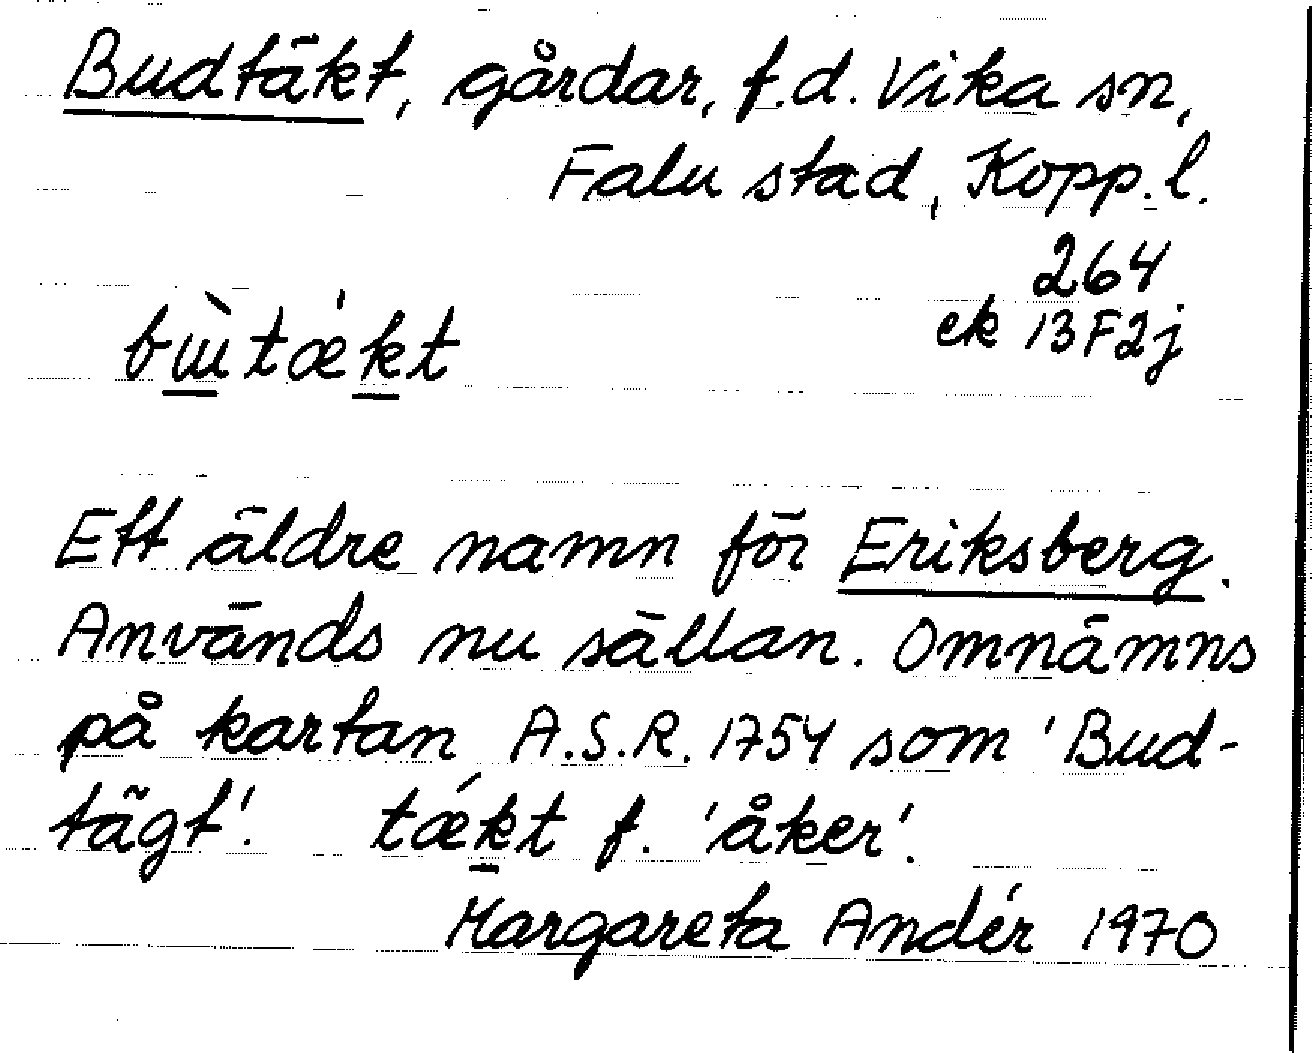 Budtäkt, gårdar, f.d. Vika sn,
Falu stad, Kopp. l.
264
ek 13F2j
bɯ̀tǽkt
Ett äldre namn för Eriksberg.
Används nu sällan. Omnämns
på kartan A.S.R. 1754 som 'Bud-
tägt'. tǽkt f. 'åker'.
Margareta Andér 1970